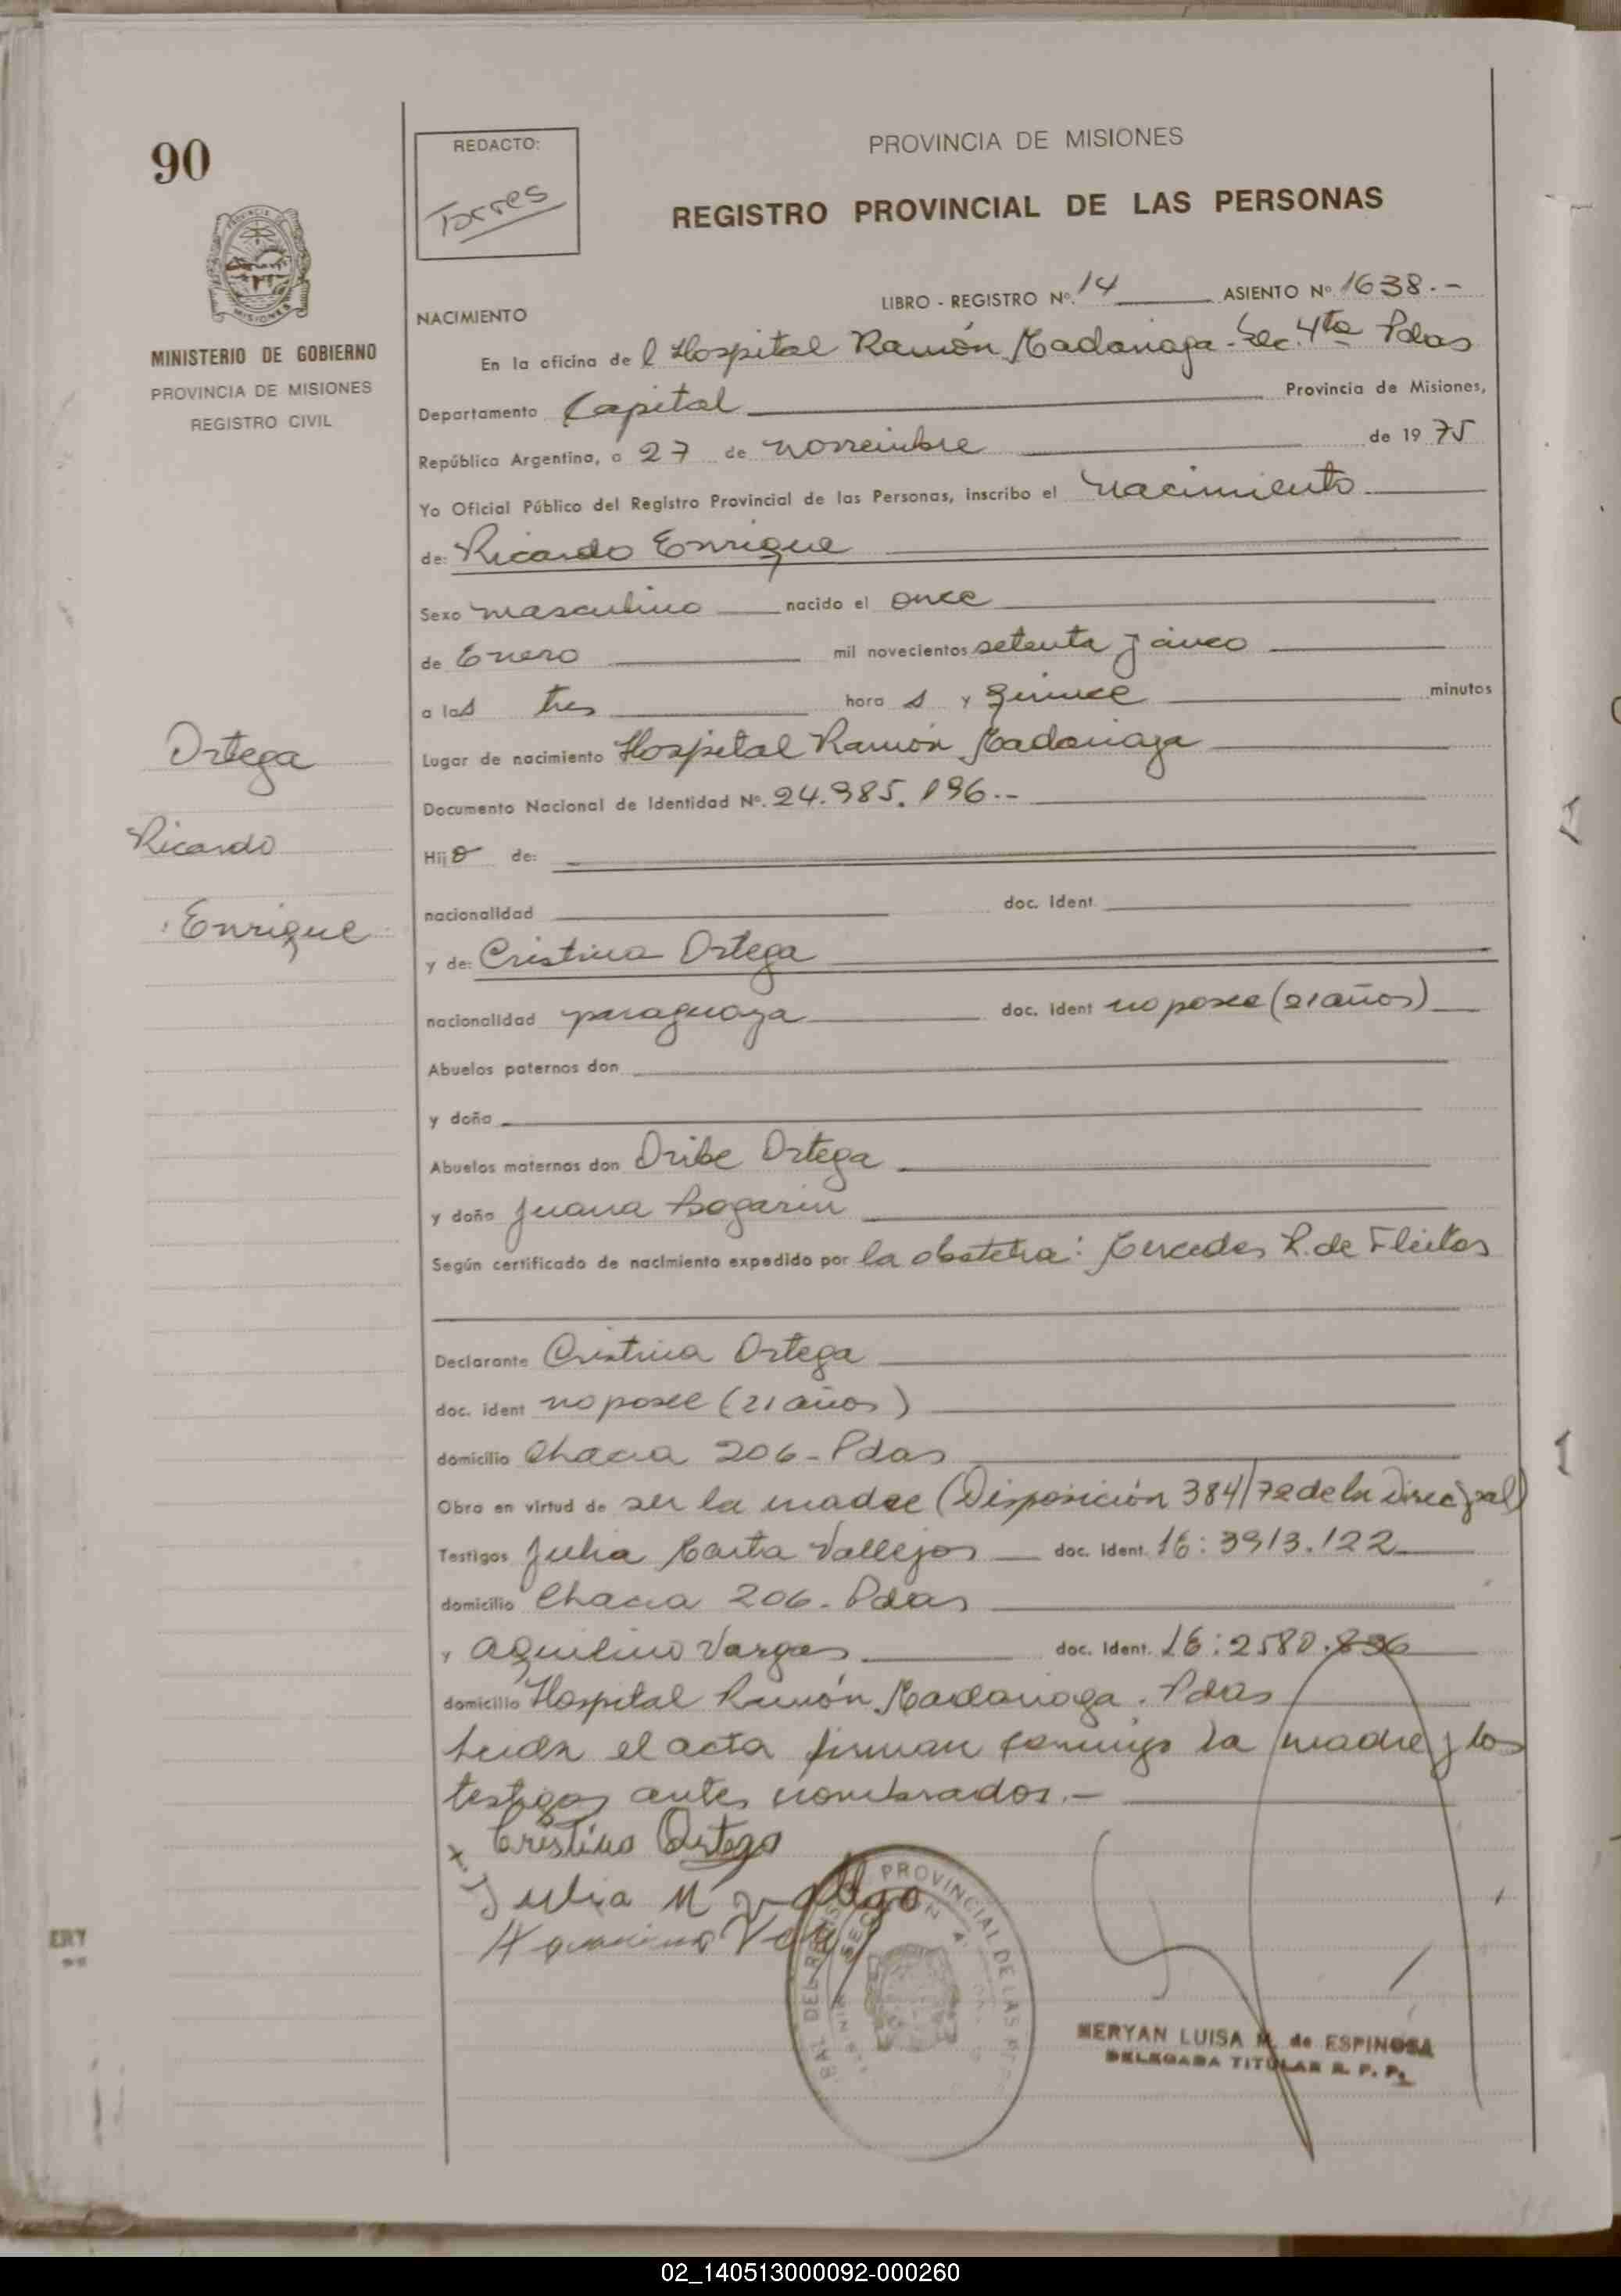 90
REDACTO:
Torres
PROVINCIA DE MISIONES
REGISTRO PROVINCIAL DE LAS PERSONAS
MISIONES
MINISTERIO DE GOBIERNO
PROVINCIA DE MISIONES
REGISTRO CIVIL
LIBRO - REGISTRO Nº. 14 ASIENTO Nº 1638.-
NACIMIENTO
En la oficina de l Hospital Ramón Madariaga - Sec. 4ta Pdas
Departamento Capital Provincia de Misiones,
República Argentina, a 27 de noviembre de 1975
Yo Oficial Público del Registro Provincial de las Personas, inscribo el nacimiento
de: Ricardo Enrique
Sexo masculino nacido el once
de Enero mil novecientos setenta y cinco
a las tres hora s y quince minutos
Lugar de nacimiento Hospital Ramón Madariaga
Documento Nacional de Identidad Nº. 24.385.196.-
Hijo de:
nacionalidad doc. Ident.
y de: Cristina Ortega
nacionalidad paraguaya doc. ident no posee (21 años)
Abuelos paternos don
y doña
Abuelos maternos don Oribe Ortega
y doña Juana Bogarin
Según certificado de nacimiento expedido por la obstetra: Mercedes R. de Fleitas
Declarante Cristina Ortega
doc. ident no posee (21 años)
domicilio Chacra 206 - Pdas
Obra en virtud de ser la madre (Disposición 384/72 de la Direc. gral)
Testigos Julia Marta Vallejos doc. ident. 16: 3913.122
domicilio Chacra 206 - Pdas
y Aquilino Vargas doc. Ident. 16: 2580.896
domicilio Hospital Ramón Madariaga. Pdas
Leída el acta firman conmigo la madre y los
testigos antes nombrados.-
Ortega
Ricardo
Enrique
x Cristina Ortega
Julia M Vallejo
PROVINCIAL DE LAS
MERYAN LUISA M. de ESPINOSA
DELEGADA TITULAR R. P. P.
ERY
02_140513000092-000260